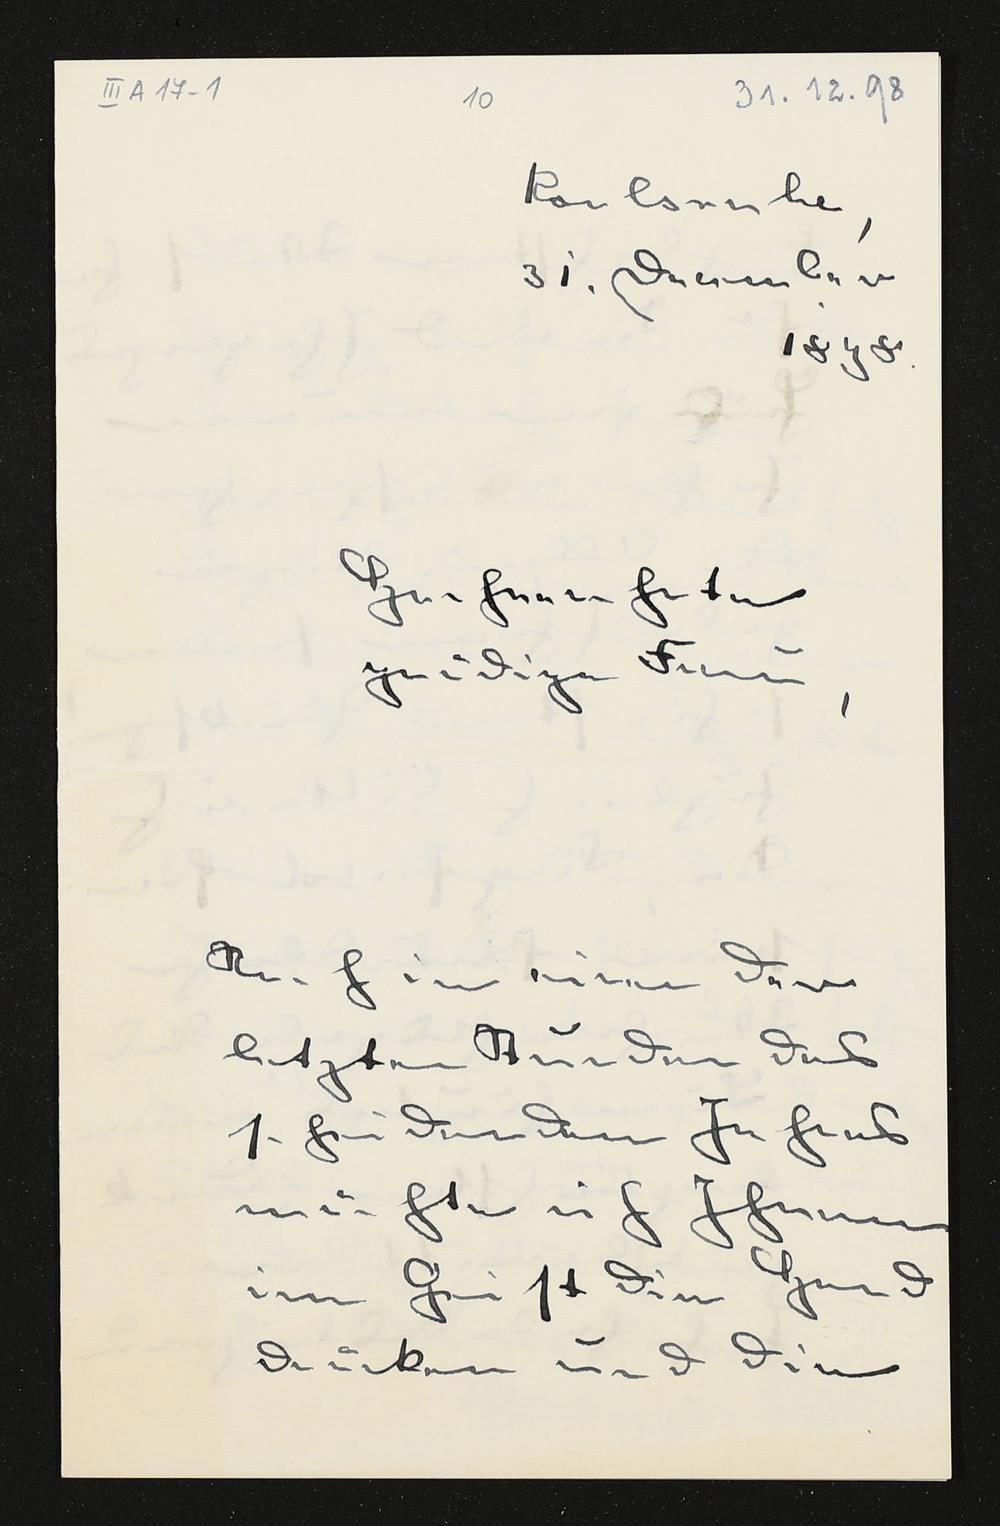 III A 17-1
10
31.12.98
Karlsruhe,
31. December
1898.
Hochverehrte
gnädige Frau,
Noch in einer der
letzten Stunden des
scheidenden Jahres
möchte ich Ihnen
im Geist die Hand
drücken und die